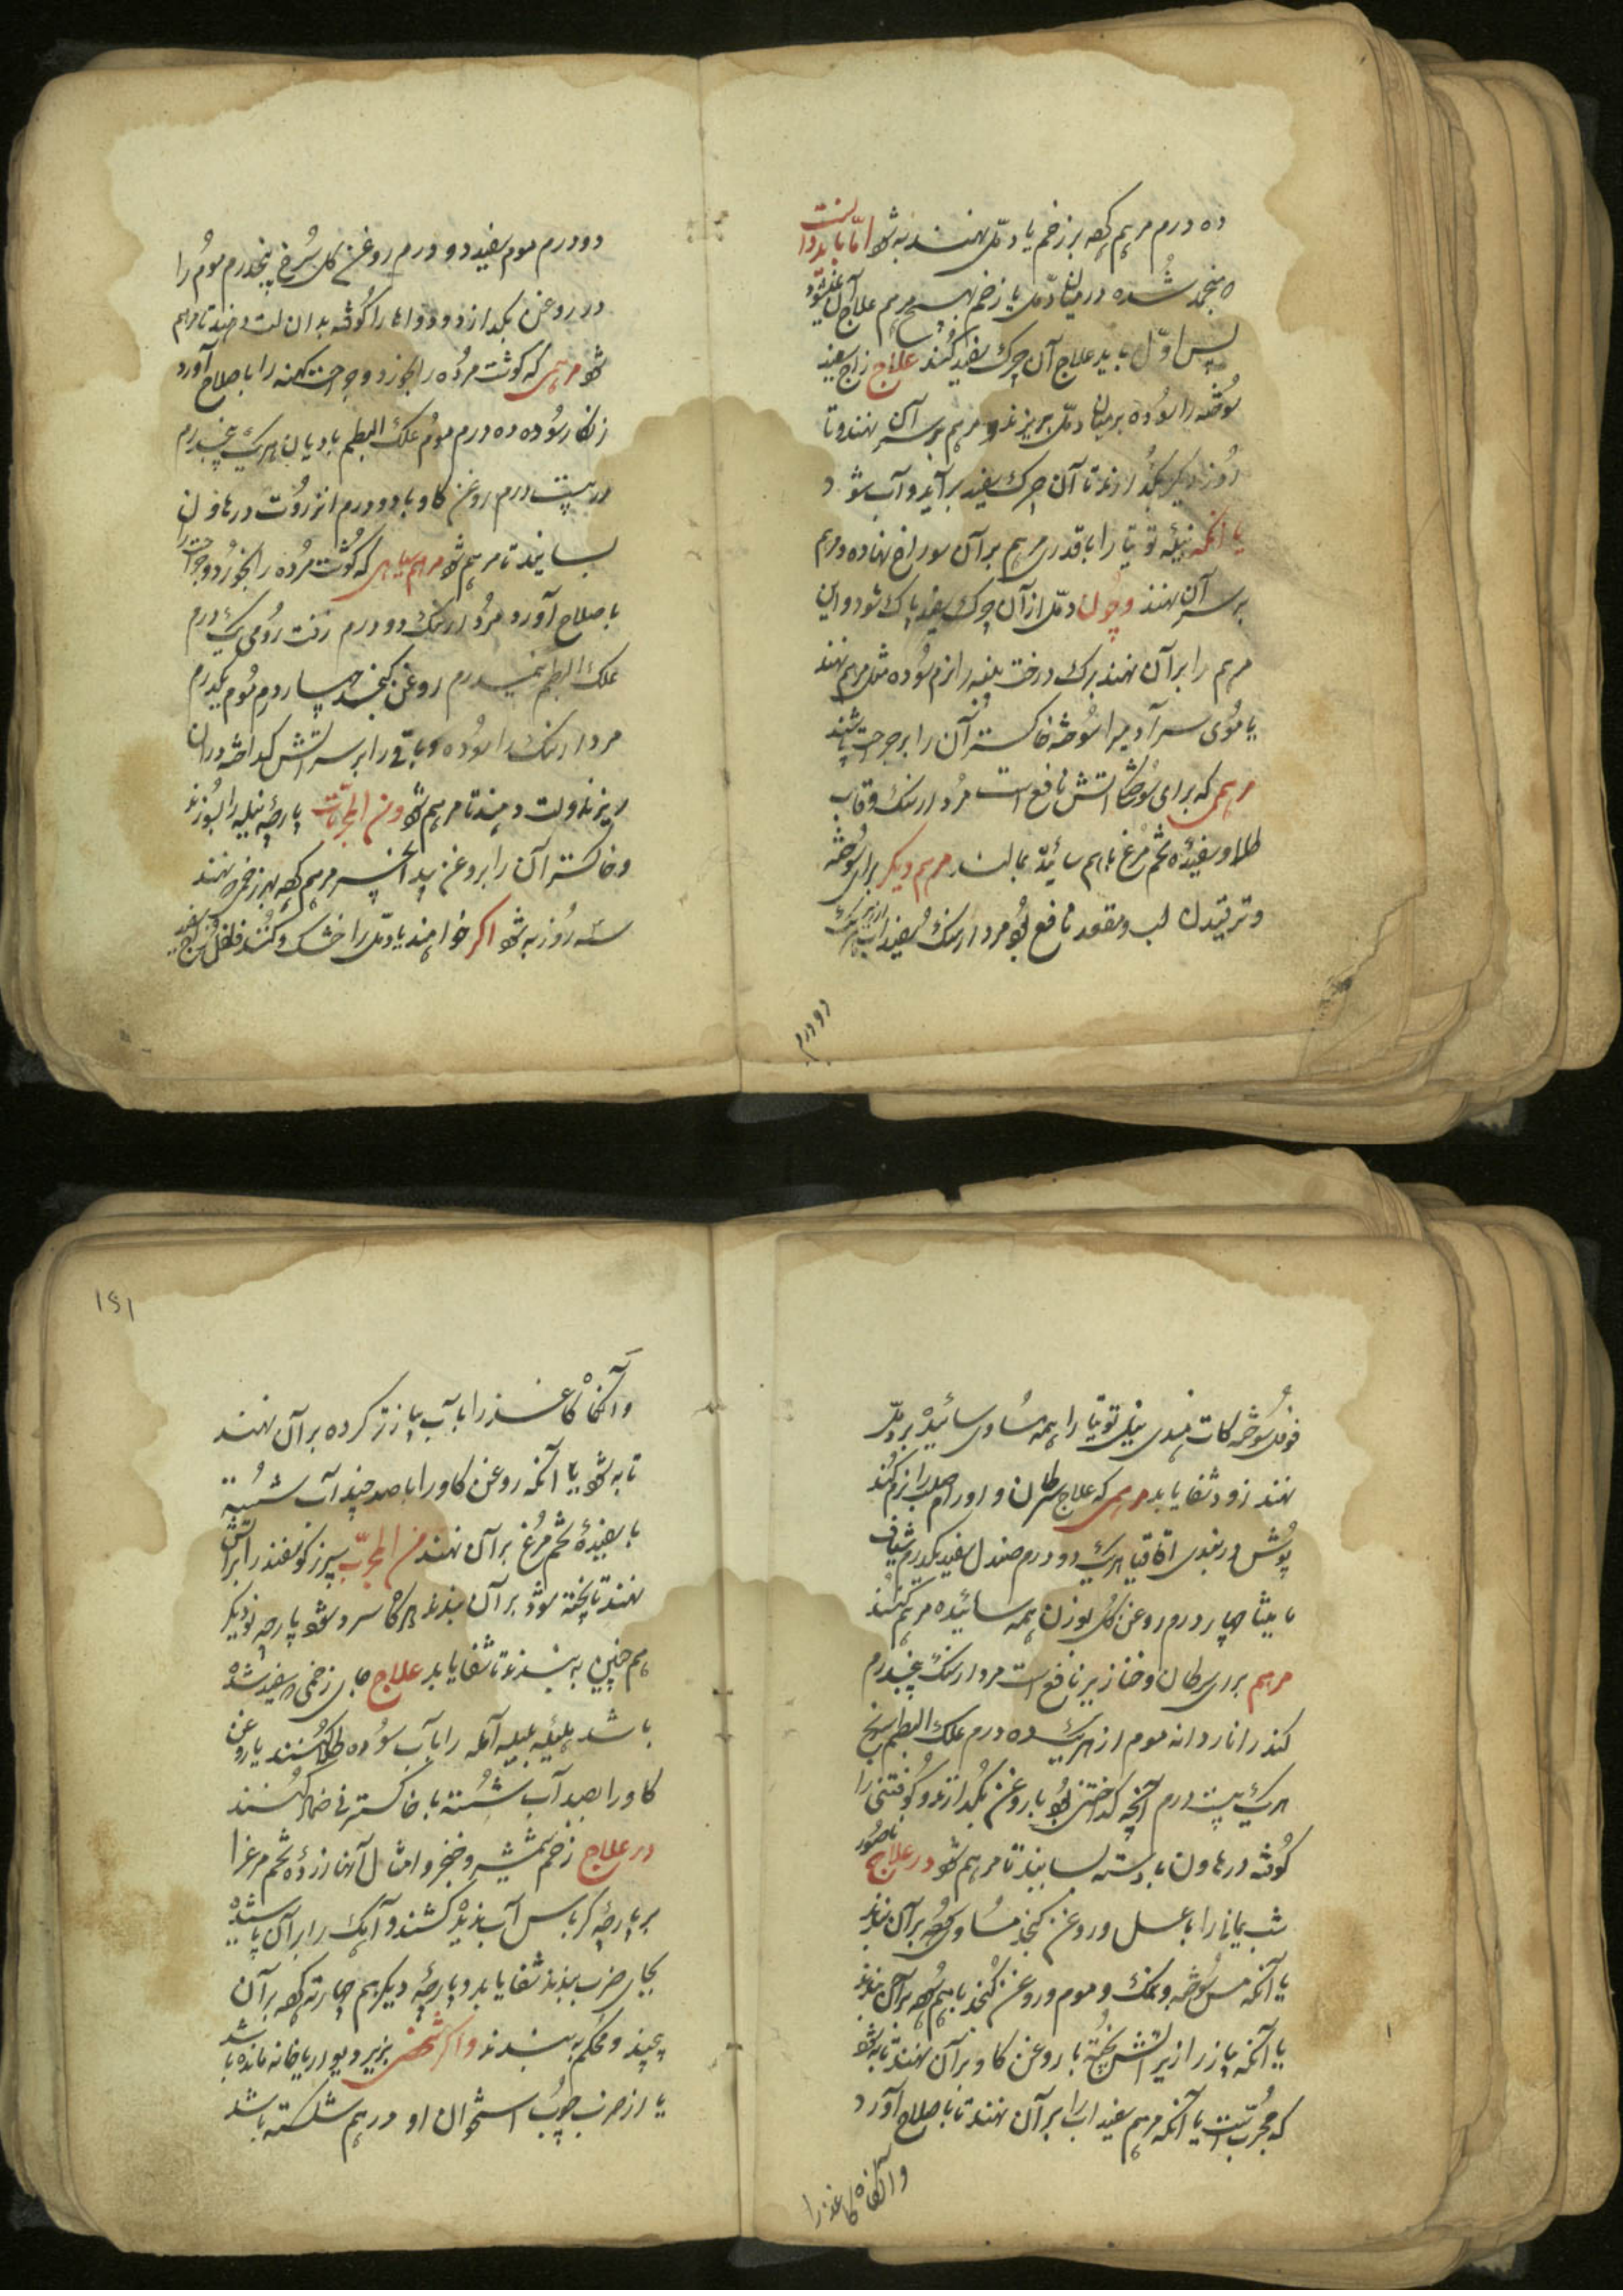 ده درم مرہم کهه بر زخم یا دمّل نهند به شو امّا باید دانست
منجمد شده درمیان دمّل یا زخم بهیچ مرہم علاج آن نمیشود
پس اوّل باید علاج آن چرک سفید کنند علاج زاج سفید
سوخته را سوده بر میان دمّل بریزند و مرہم بر سر آن نهند و تا
روز دیگر بگذارند تا آن چرک سفید برآید و آب شود
یا آنکه پنبه توتیا را با قدری مرہم بر آن سوراخ نهاده و مرہم
بر سر آن نهند و چون دمّل از آن چرک سفید پاک شود و این
مرہم را بر آن نهند برک درخت را نرم سوده مثل مرہم نهند
یا موی سر آدمیرا سوخته خاکستر آن را بر جراحت پاشند
مرہمی که برای سوختگی آتش نافع است مردارسنک و قاب
طلا و سفیدهٔ تخم مرغ باہم سائیده بمالند مرہم دیکر برای سوخته
و ترقیدن لب و مقعد نافع بود مردارسنک سفیداب از هریک
دودرم
دو درم موم سفید دو درم روغن کل سرخ پنجدرم موم را
در روغن بکدازد و دواها را کوفته بدان لت دهند تا مرہم
شو مرہمی که کوشت مرده را بخورد و جراحت کهنه را باصلاح آورد
زنکار سوده ده درم موم علک البطم بادیان هریک پنجدرم
در بیست درم روغن کاو با دو درم انزروت در هاون
بسایند تا مرہم شو مرہم سیاهی که کوشت مرده را بخورد و جراحت را
باصلاح آورد مردارسنک دو درم زفت رومی یک درم
علک البطم نیمدرم روغن کنجد چهار درم موم یکدرم
مردارسنک را سوده و باقی را بر سر آتش کداخته در آن
ریزند و لت دهند تا مرہم شو و من المجربات پارچهٔ نیله را بسوزند
و خاکستر آن را بروغن بید انجیر مرہم کهه بهر زخمی نهند
سه روز به شو اکر خواهند یا دمّل را خشک کنند فلفل
فوفل سوخته کات هندی نیل توتیا را همه مساوی سائیده بر دمّل
نهند زود شفا یابد مرہمی که علاج سرطان و اورام صلب را نرم کند
پوش دربندی اقاقیا هریک دو درم صندل سفید یکدرم شیاف
مامیثا چهار درم روغن کل بوزن همه سائیده مرہم کنند
مرہم برای سرطان و خنازیر نافع است مردارسنک پنجدرم
کندر اناردانه موم از هریک ده درم علک البطم
هریک بیست درم آنچه کداختنی بود با روغن بکدازند و کوفتنی را
کوفته در هاون با دسته بسایند تا مرہم شو در علاج ناصور
شب یمانی را با عسل و روغن کنجد مساوی کهه بر آن بندند
یا آنکه مس سوخته و نمک و موم و روغن کنجد با مرهم کهه بر آن بندند
یا آنکه پیاز را زیر آتش پخته با روغن کاو بر آن نهند تا به شو
که مجرب است یا آنکه مرہم سفیداب را بر آن نهند تا باصلاح آورد
وآنکاه کاغذ را
١٤١
وآنکاه کاغذ را با آب پیاز تر کرده بر آن نهند
تا به شو یا آنکه روغن کاو را با صد چند آب شسته
با سفیدهٔ تخم مرغ بر آن نهند من المجرّب سپرز کوسفند را بر آتش
نهند تا پخته شود بر آن بندند هرکاه سرد شو پارچه نو دیکر
هم چنین به بندند تا شفا یابد علاج جای زخمی که سفید شده
باشد هلیله بلیله آمله را با آب سوده طلا کنند یا روغن
کاو را بصد آب شسته با خاکستر نی ضماد کنند
در علاج زخم شمشیر و خنجر و امثال آنها زردهٔ تخم مرغ را
بر پارچهٔ کرباس آب ندیده کشند و آهک را بر آن پاشیده
بجای ضرب بندند شفا یابد و پارچهٔ دیکر هم چهار ته کهه بر آن
پیچند و محکم به بندند و اکر شخصی بزیر دیوار یا خانه مانده باشد
یا از ضرب چوب استخوان او در هم شکسته باشد